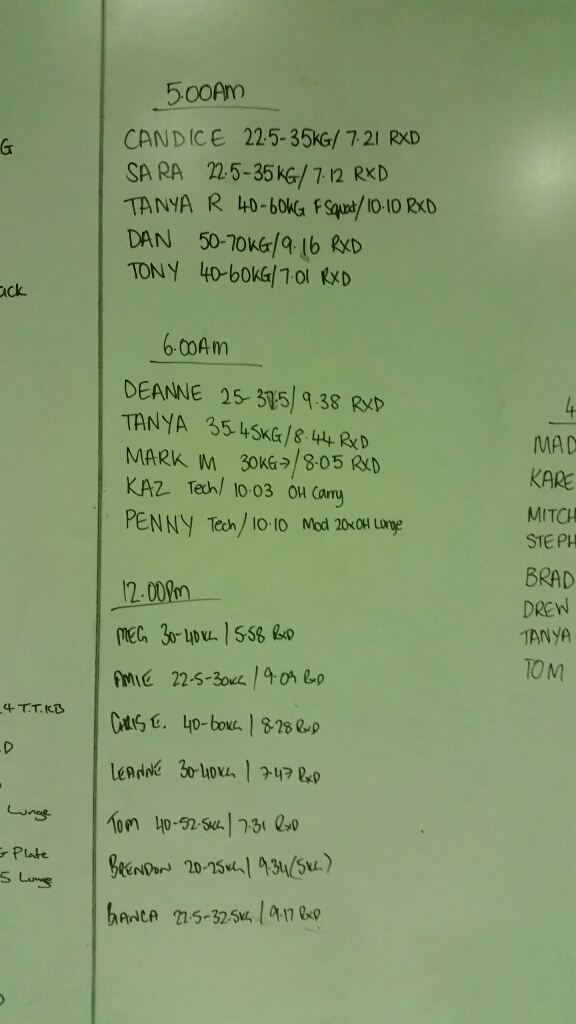 G
ack
4 T.T.KB
D
Lunge
G Plate
S Lunge
5.00AM
CANDICE 22.5-35KG/7.21 RXD
SARA 22.5-35KG/7.12 RXD
TANYA R 40-60KG F Squat/10.10 RXD
DAN 50-70KG/9.16 RXD
TONY 40-60KG/7.01 RXD
6.00AM
DEANNE 25-37.5/9.38 RXD
TANYA 35-45KG/8.44 RXD
MARK M 30KG→/8.05 RXD
KAZ Tech/10.03 OH Carry
PENNY Tech/10.10 Mod 20xOH Lunge
12.00PM
MEG 30-40KG/5.58 RXD
AMIE 22.5-30KG/9.09 RXD
CHRIS E. 40-60KG/8.28 RXD
LEANNE 30-40KG/7.47 RXD
TOM 40-52.5KG/7.31 RXD
BRENDON 20-25KG/9.34(5KG)
BIANCA 22.5-32.5KG/9.17 RXD
4
MAD
KARE
MITCH
STEPH
BRAD
DREW
TANYA
TOM